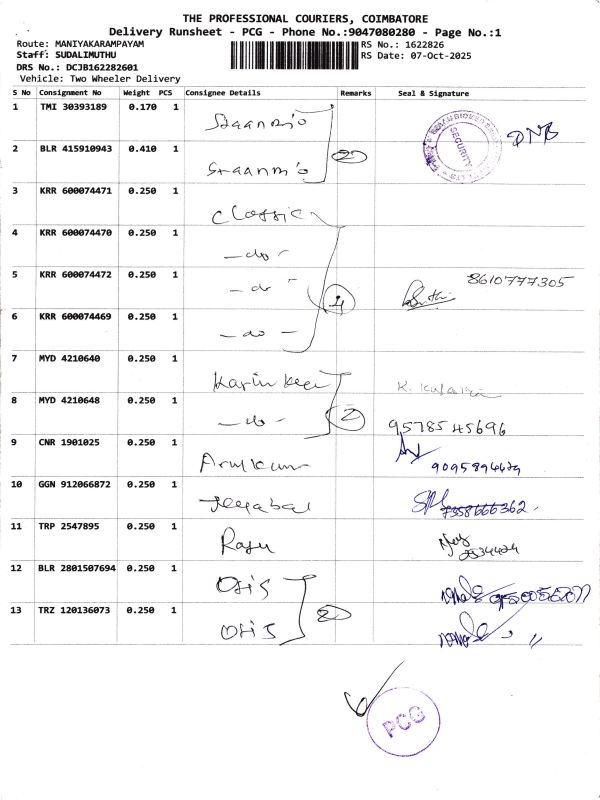 THE PROFESSIONAL COURIERS, COIMBATORE
Delivery Runsheet - PCG - Phone No.:9047080280 - Page No.:1
Route: MANIYAKARAMPAYAM RS No.: 1622826
Staff: SUDALIMUTHU RS Date: 07-Oct-2025
DRS No.: DCJB162282601
Vehicle: Two Wheeler Delivery
S No Consignment No Weight PCS Consignee Details Remarks Seal & Signature
1 TMI 30393189 0.170 1
SECURITY
2 BLR 415910943 0.410 1 2
3 KRR 600074471 0.250 1 Classic
4 KRR 600074470 0.250 1 -do-
5 KRR 600074472 0.250 1 -do- 4 8610777305
6 KRR 600074469 0.250 1 -do-
7 MYD 4210640 0.250 1
8 MYD 4210648 0.250 1 -do- 2 9578545696
9 CNR 1901025 0.250 1 9095894629
10 GGN 912066872 0.250 1 7358666362
11 TRP 2547895 0.250 1 Raju
12 BLR 2801507694 0.250 1 Otis
13 TRZ 120136073 0.250 1 Otis 2
PCG